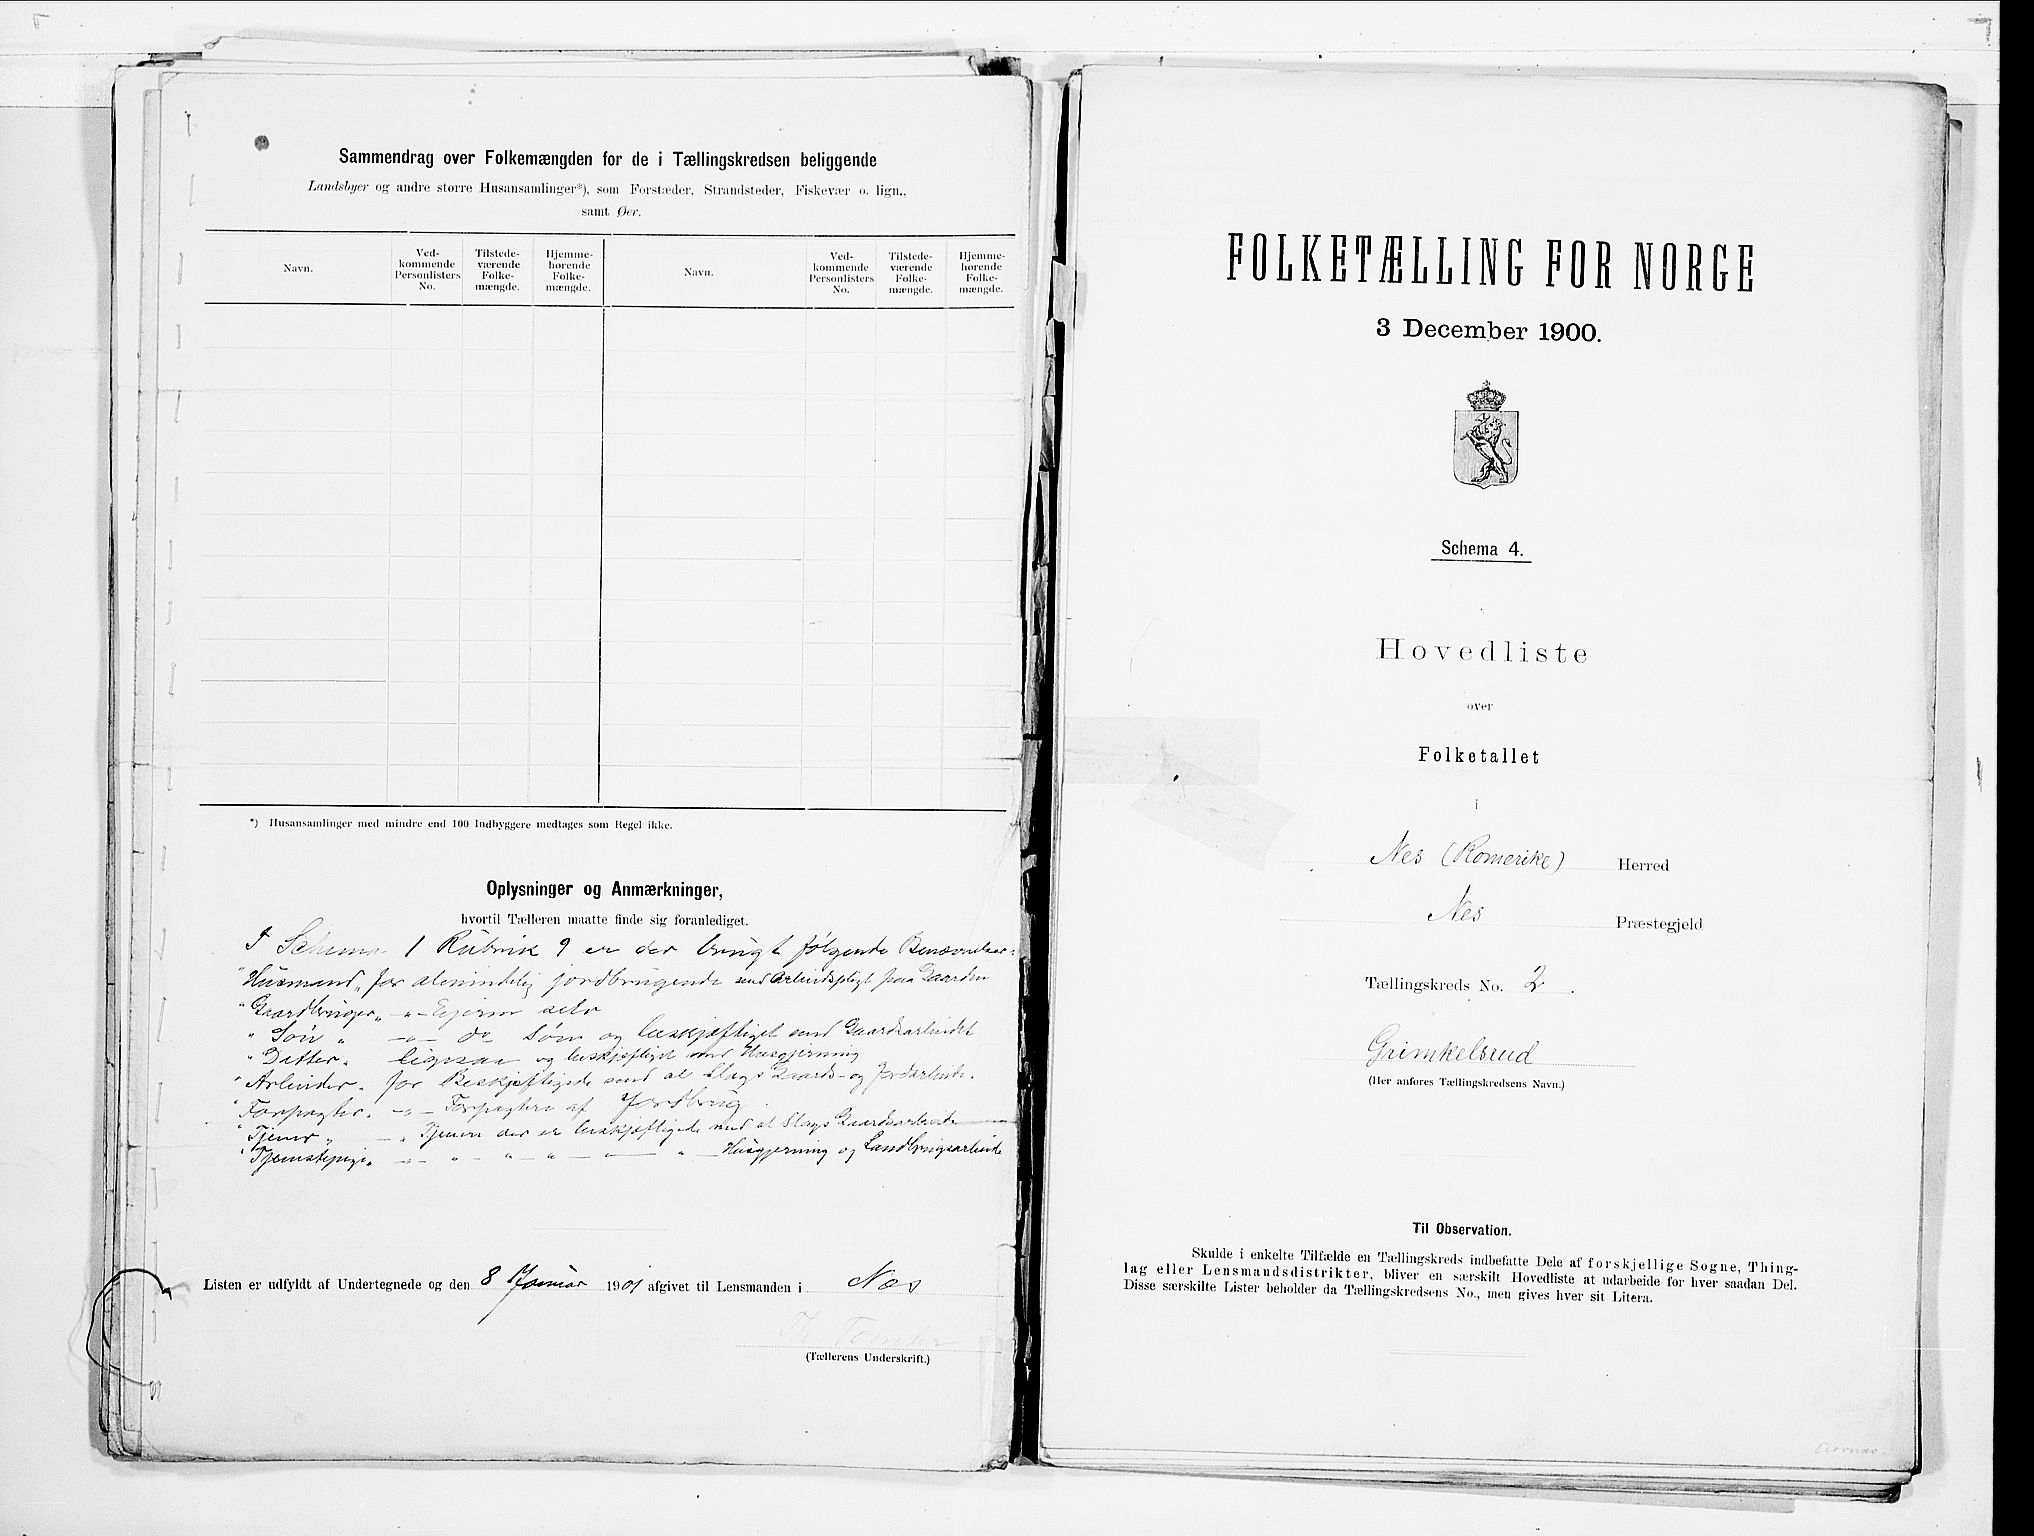 Sammendrag over Folkemængden for de i Tællingskredsen beliggende
Landsbyer og andre større Husansamlinger*), som Forstæder, Strandsteder, Fiskevær o. lign.,
samt Øer.
Navn.
Ved-
kommende
Personlisters
No.
Tilstede-
værende
Folke-
mængde.
Hjemme-
hørende
Folke-
mængde.
Navn.
Ved-
kommende
Personlisters
No.
Tilstede-
værende
Folke-
mængde.
Hjemme-
hørende
Folke-
mængde.
*) Husansamlinger med mindre end 100 Indbyggere medtages som Regel ikke.
Oplysninger og Anmærkninger,
hvortil Tælleren maatte finde sig foranlediget.
I Schema 1 Rubrik 9 er der brugt følgende Benævnelser:
"Husmand" for almindelig jordbrugende med Arbeidspligt paa Gaarden
"Gaardbruger" -"- Eieren selv
"Søn" -"- do Søn og beskjæftiget med Gaardsarbeidet
"Datter" ligesaa og beskjæftiget med Husgjerning
"Arbeider" for Beskjæftigede med al Slags Gaards- og Jordarbeide.
"Forpagter" -"- Forpagtere af Jordbrug
"Tjener" -"- Tjenere der er beskjæftigede med al Slags Gaardsarbeide
"Tjenestepige" -"- " - " - " - " - Husgjerning og Landbrugsarbeide
Listen er udfyldt af Undertegnede og den 8 Januar 1901 afgivet til Lensmanden i Nes
Th.
(Tællerens Underskrift.)
FOLKETÆLLING FOR NORGE
3 December 1900.
Schema 4.
Hovedliste
over
Folketallet
i
Nes (Romerike) Herred
Nes Præstegjeld
Tællingskreds No. 2.
Grimkelsrud
(Her anføres Tællingskredsens Navn.)
Til Observation.
Skulde i enkelte Tilfælde en Tællingskreds indbefatte Dele af forskjellige Sogne, Thing-
lag eller Lensmandsdistrikter, bliver en særskilt Hovedliste at udarbeide for hver saadan Del.
Disse særskilte Lister beholder da Tællingskredsens No., men gives hver sit Litera.
Aarnæs.